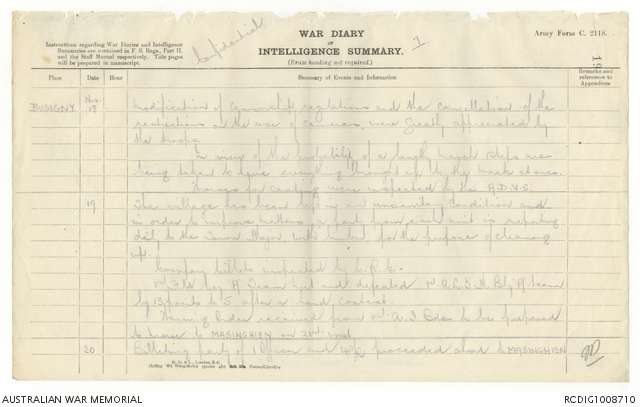 WAR DIARY
OR
INTELLIGENCE SUMMARY.
(Erase heading not required.)
Army Form C. 2118.
Instructions regarding War Diaries and Intelligence
Summaries are contained in F. S. Regs., Part II.
and the Staff Manual respectively. Title pages
will be prepared in manuscript.
Confidential
1
19
Place Date Hour Summary of Events and Information Remarks and
references to
Appendices
BUSIGNY Nov. 18 modification of Censorship regulations and the cancellation of the
restrictions on the use of cameras, were greatly appreciated by
the troops.
In view of the probability of a lengthy march steps are
being taken to have everything brought up to the mark at once.
Horses for casting were inspected by the A.D.V.S.
19 The village has been left in an unsanitary condition and
in order to improve matters a party from each unit is reporting
daily to the Town Major, with for the purpose of cleaning
up.
Company billets inspected by C.R.E.
team met and defeated team
by 13 points to 5 after a hard contest.
Warning Order received from to be prepared
to move to MASINGHIEN on
20 Billeting party of 1 Officer and proceeded to MASINGHIEN
AUSTRALIAN WAR MEMORIAL
RCDIG1008710